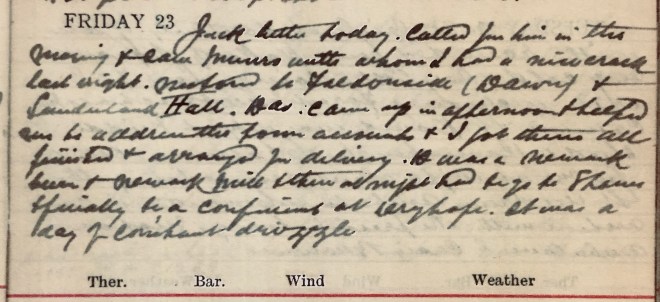 FRIDAY 23
Jack better today. Called for him in the
morning & saw with whom I had a nice crack
last night. to Faldonside (Dawn) &
Sunderland Hall. Was. came up in afternoon & helped
me to address the farm accounts & I got them all
finished & arranged for delivery. was a Newark
& Newark Mill & then at night had to go to
specially to a confinent at . It was a
day of constant drizzle
Ther. Bar. Wind Weather